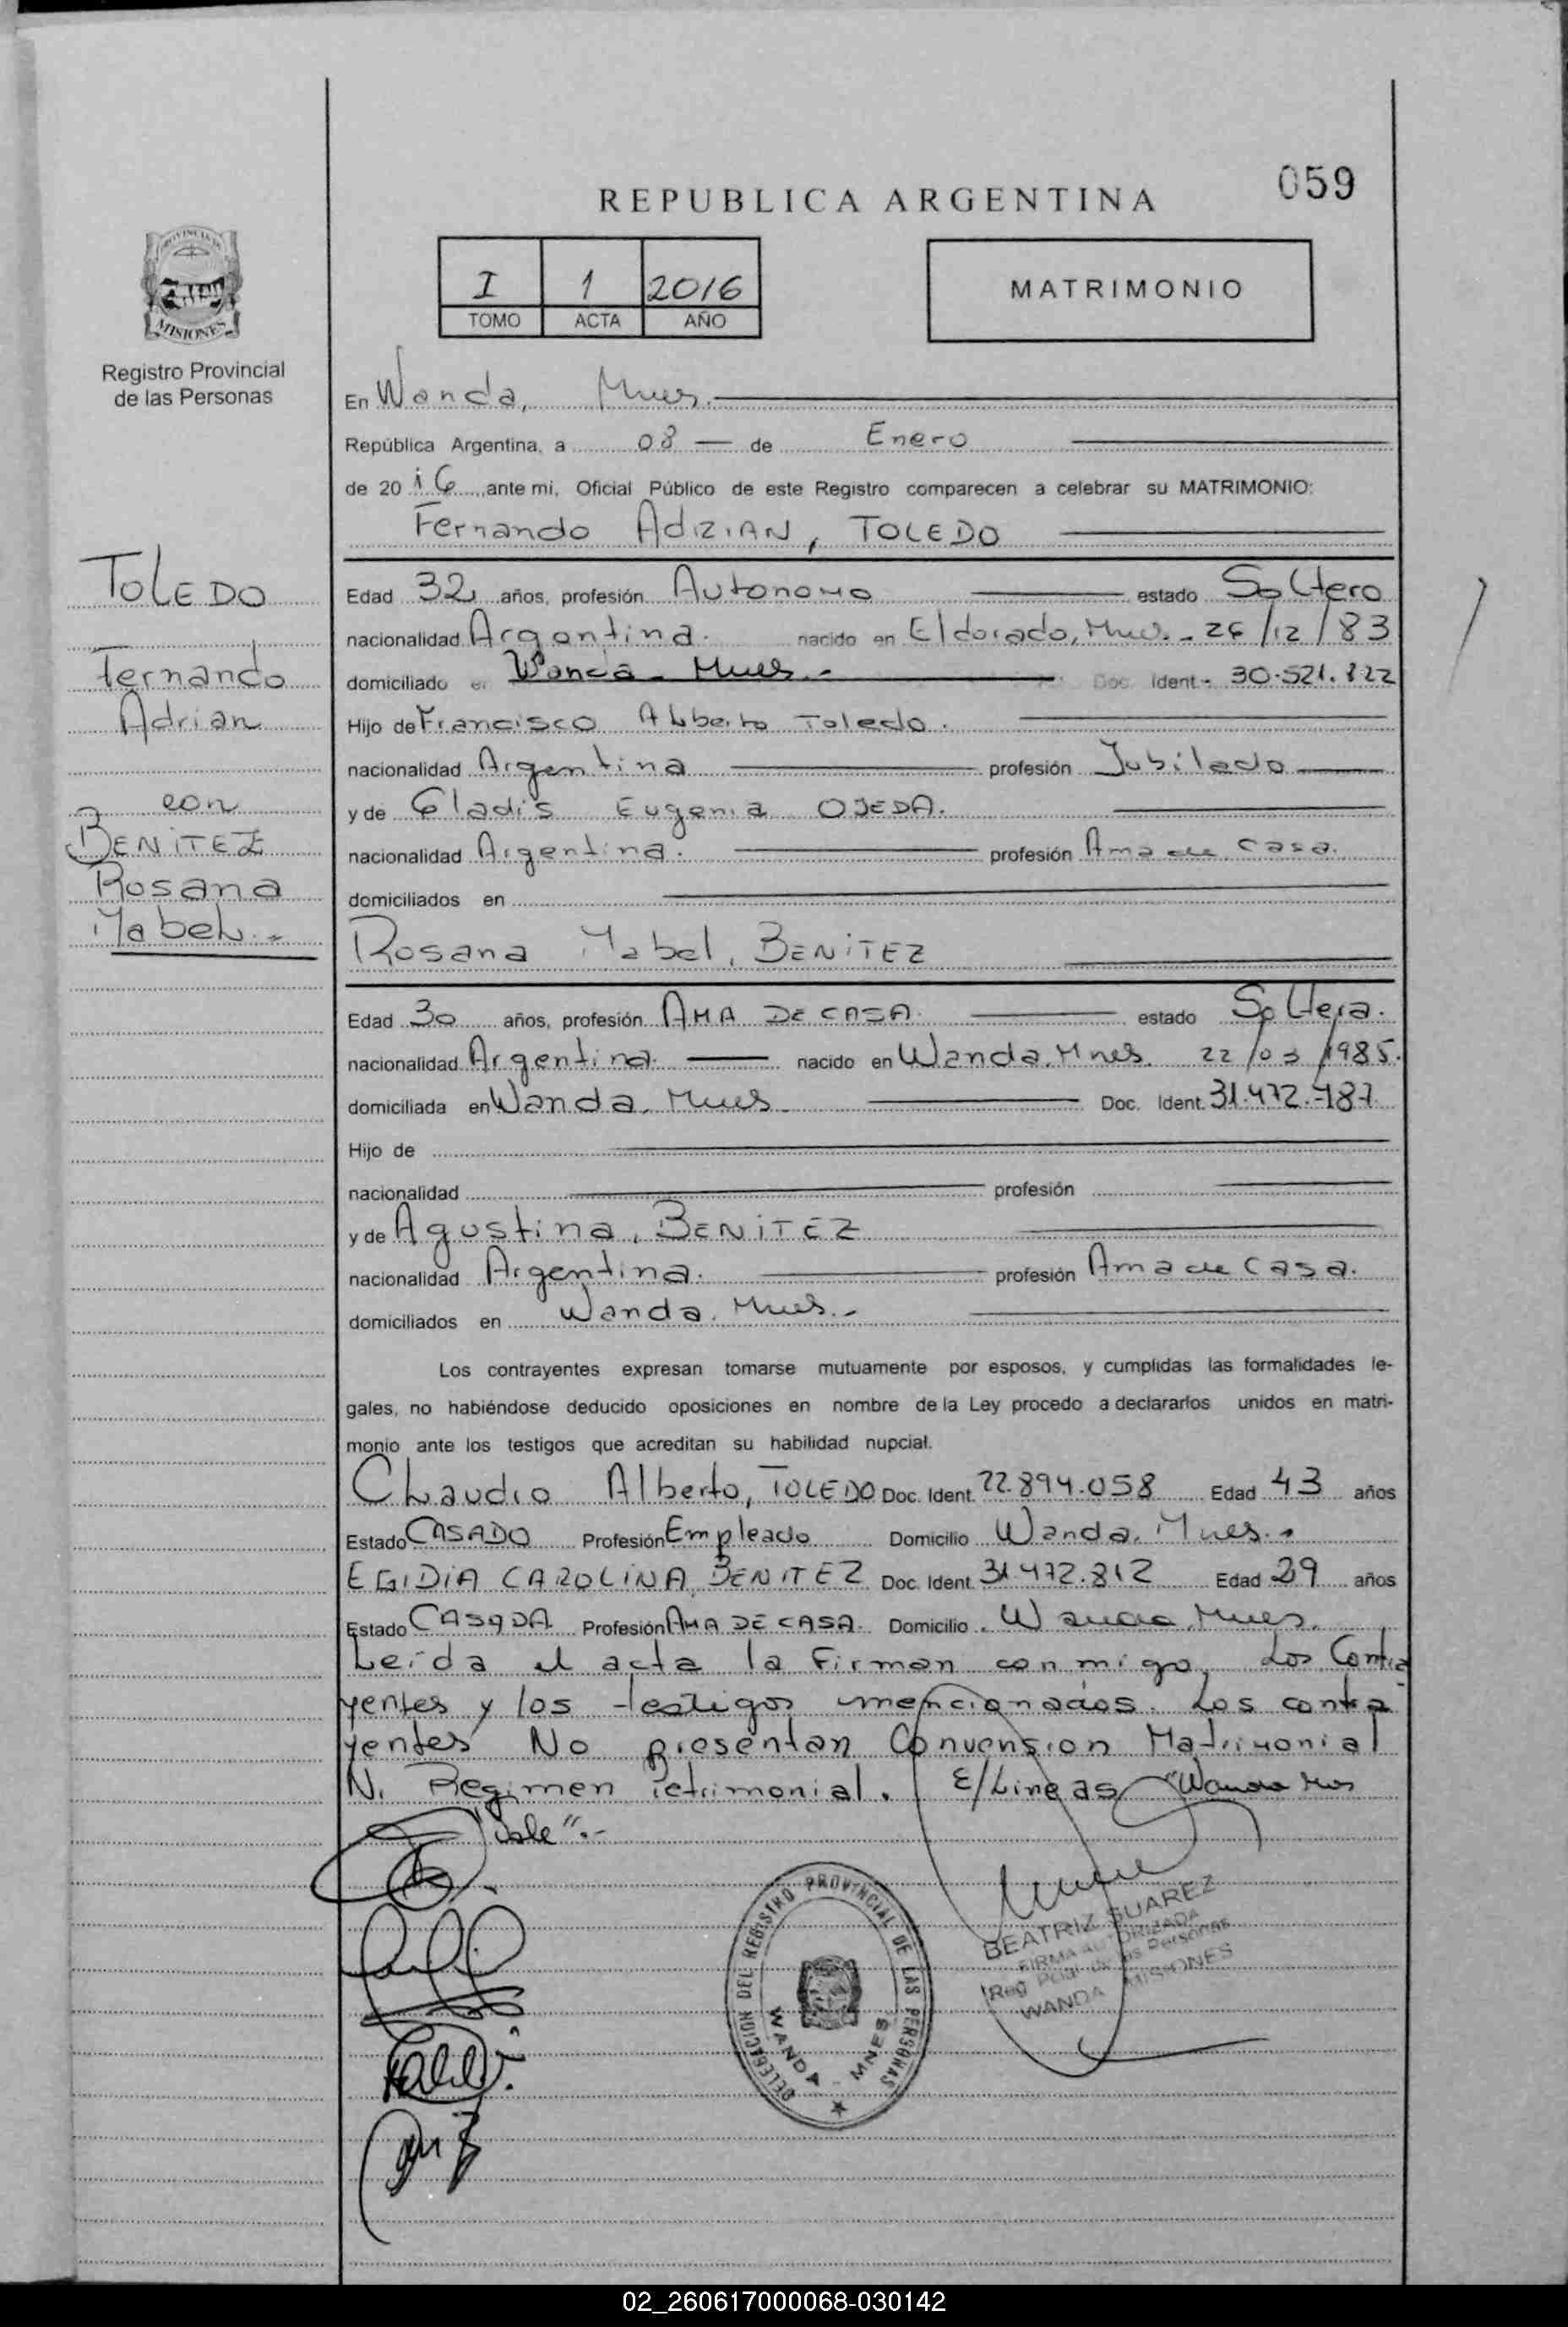 059
REPUBLICA ARGENTINA
I 1 2016
TOMO ACTA AÑO
MATRIMONIO
PROVINCIA DE
MISIONES
Registro Provincial
de las Personas
En Wanda, Mnes.
República Argentina, a 08 de Enero
de 20 16 ,ante mi, Oficial Público de este Registro comparecen a celebrar su MATRIMONIO:
Fernando ADRIAN, TOLEDO
TOLEDO
Fernando
Adrian
con
BENITEZ
Rosana
Mabel.-
Edad 32 años, profesión Autonomo estado Soltero
nacionalidad Argentina. nacido en Eldorado, Mnes.- 26/12/83
domiciliado en Wanda - Mnes.- Doc. Ident.- 30.521.822
Hijo de Francisco Alberto Toledo.
nacionalidad Argentina profesión Jubilado
y de Gladis Eugenia OJEDA.
nacionalidad Argentina. profesión Ama de Casa.
domiciliados en
Rosana Mabel, BENITEZ
Edad 30 años, profesión AMA DE CASA. estado Soltera.
nacionalidad Argentina. nacido en Wanda, Mnes. 22/03/1985.
domiciliada en Wanda, Mnes. Doc. Ident. 31.472.787.
Hijo de
nacionalidad profesión
y de Agustina, BENITEZ
nacionalidad Argentina. profesión Ama de Casa.
domiciliados en Wanda, Mnes.-
Los contrayentes expresan tomarse mutuamente por esposos, y cumplidas las formalidades le-
gales, no habiéndose deducido oposiciones en nombre de la Ley procedo a declararlos unidos en matri-
monio ante los testigos que acreditan su habilidad nupcial.
Claudio Alberto, TOLEDO Doc. Ident. 22.894.058 Edad 43 años
Estado CASADO Profesión Empleado Domicilio Wanda, Mnes.-
EGIDIA CAROLINA, BENITEZ Doc. Ident. 31.472.812 Edad 29 años
Estado CASADA Profesión AMA DE CASA. Domicilio Wanda, Mnes.
Leida el acta la Firman conmigo, Los Contra
yentes y los testigos mencionados. Los contra
yentes No presentan Convension Matrimonial
Ni Regimen Patrimonial. E/Lineas "Wanda Mnes
Vale".-
DELEGACION DEL REGISTRO PROVINCIAL DE LAS PERSONAS
WANDA - MNES
BEATRIZ SUAREZ
FIRMA AUTORIZADA
Reg. Pcial. de las Personas
WANDA MISIONES
02_260617000068-030142